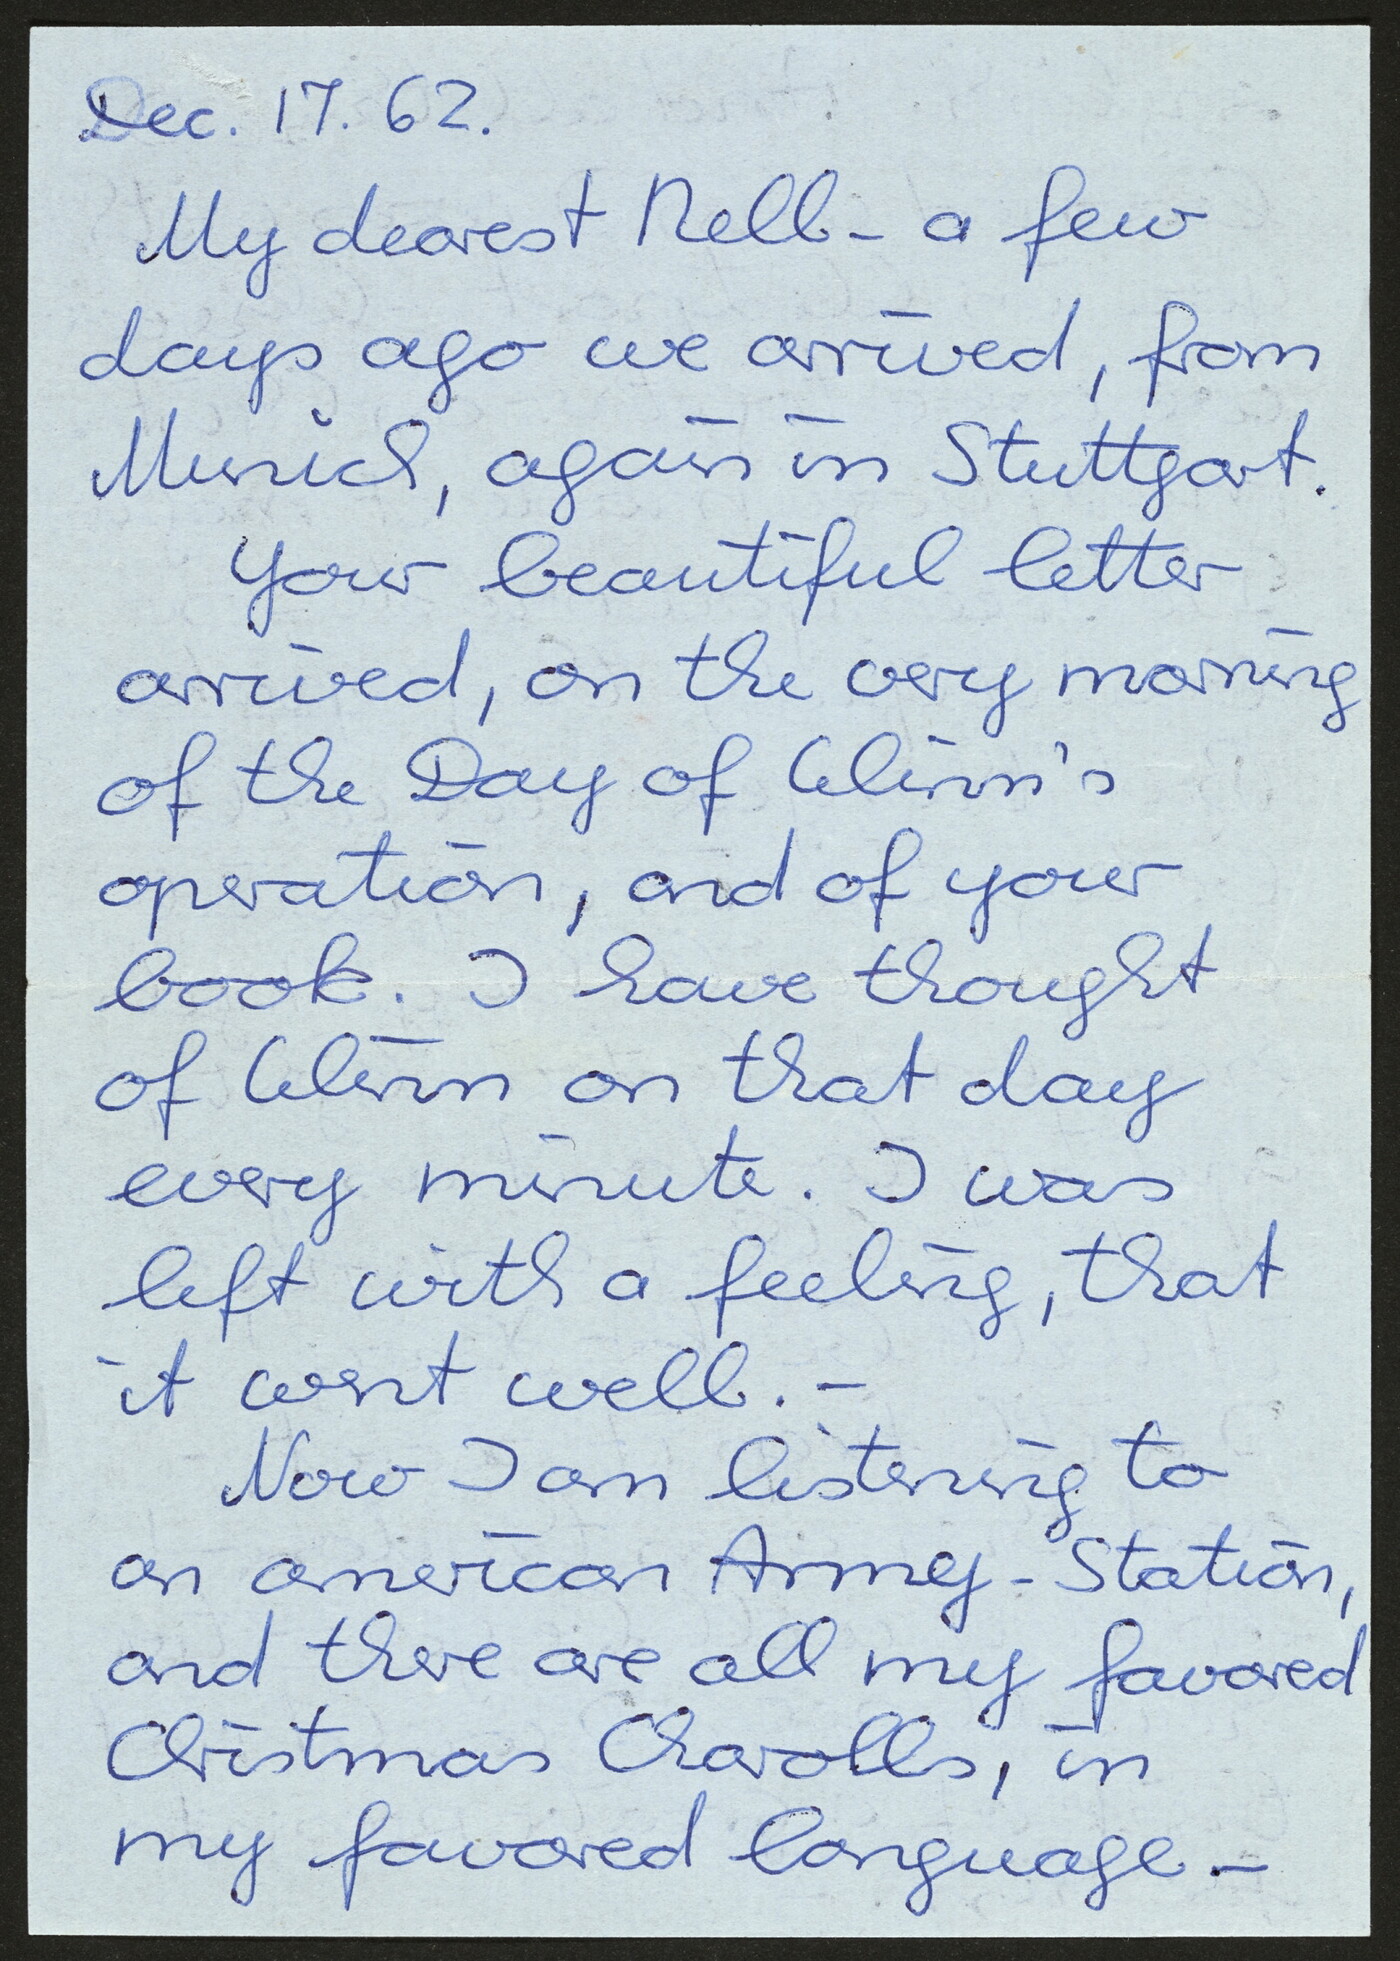 Dec. 17. 62.
My dearest Nell - a few
days ago we arrived, from
Munich, again in Stuttgart.
Your beautiful letter
arrived, on the very morning
of the Day of Glinn's
operation, and of your
book. I have thought
of Glinn on that day
every minute. I was
left with a feeling, that
it went well. -
Now I am listening to
an american Army-Station,
and there are all my favored
Christmas Charolls, in
my favored language. -